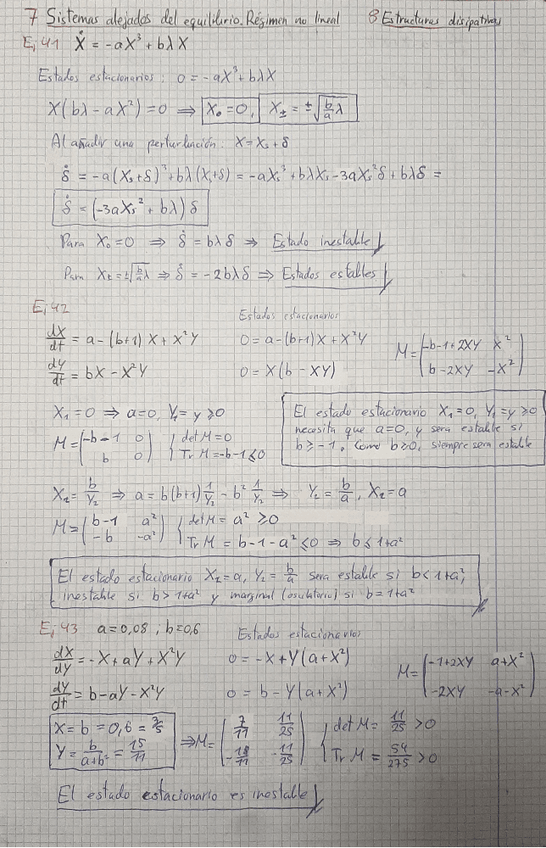 7 Sistemas alejados del equilibrio. Régimen no lineal 8 Estructuras disipativas
Ej 41 Ẋ = -aX³ + bλX
Estados estacionarios: 0 = -aX³ + bλX
X(bλ - aX²) = 0 ⟹ X₀ = 0, X± = ±√(b/a λ)
Al añadir una perturbación: X = Xs + δ
δ̇ = -a(Xs+δ)³ + bλ(Xs+δ) = -aXs³ + bλXs - 3aXs²δ + bλδ =
δ̇ = (-3aXs² + bλ)δ
Para X₀ = 0 ⟹ δ̇ = bλδ ⟹ Estado inestable
Para X± = ±√(b/a λ) ⟹ δ̇ = -2bλδ ⟹ Estados estables
Ej 42 Estados estacionarios
dX/dt = a - (b+1)X + X²Y 0 = a - (b+1)X + X²Y
dY/dt = bX - X²Y 0 = X(b - XY)
M = (-b-1+2XY X²
b-2XY -X²)
X₁ = 0 ⟹ a = 0, Y₁ = y ≥ 0
M = (-b-1 0
b 0) { det M = 0
Tr M = -b-1 ≤ 0
El estado estacionario X₁ = 0, Y₁ = y ≥ 0
necesita que a = 0, y sera estable si
b ≥ -1. Como b ≥ 0, siempre sera estable
X₂ = b/Y₂ ⟹ a = b(b+1) 1/Y₂ - b² 1/Y₂ ⟹ Y₂ = b/a, X₂ = a
M = (b-1 a²
-b -a²) { det M = a² ≥ 0
Tr M = b-1-a² ≤ 0 ⟹ b ≤ 1+a²
El estado estacionario X₂ = a, Y₂ = b/a sera estable si b < 1+a²,
inestable si b > 1+a² y marginal (osculatorio) si b = 1+a²
Ej 43 a = 0,08; b = 0,6 Estados estacionarios
dX/dY = -X + aY + X²Y 0 = -X + Y(a+X²)
dY/dt = b - aY - X²Y 0 = b - Y(a+X²)
M = (-1+2XY a+X²
-2XY -a-X²)
X = b = 0,6 = 3/5
Y = b/(a+b²) = 15/11
⟹ M = (7/11 11/25
-18/11 -11/25) { det M = 11/25 > 0
Tr M = 54/275 > 0
El estado estacionario es inestable